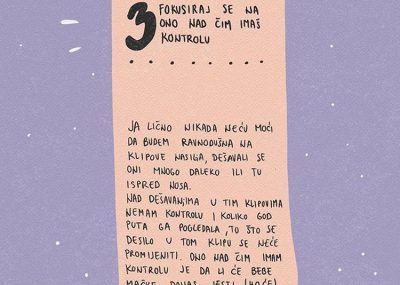 3 FOKUSIRAJ SE NA
ONO NAD ČIM IMAŠ
KONTROLU
JA LIČNO NIKADA NEĆU MOĆI
DA BUDEM RAVNODUŠNA NA
KLIPOVE NASILJA, DEŠAVALI SE
ONI MNOGO DALEKO ILI TU
ISPRED NOSA.
NAD DEŠAVANJIMA U TIM KLIPOVIMA
NEMAM KONTROLU I KOLIKO GOD
PUTA GA POGLEDALA, TO ŠTO SE
DESILO U TOM KLIPU SE NEĆE
PROMIJENITI. ONO NAD ČIM IMAM
KONTROLU JE DA LI ĆE BEBE
MAČKE DANAS JESTI (HOĆE)